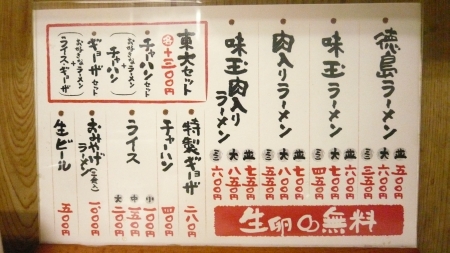 徳島ラーメン
並 五〇〇円
大 六〇〇円
ミニ 三五〇円
味玉ラーメン
並 六〇〇円
大 七〇〇円
ミニ 四五〇円
肉入りラーメン
並 七〇〇円
大 八〇〇円
ミニ 五五〇円
味玉肉入り
ラーメン
並 七五〇円
大 八五〇円
ミニ 六〇〇円
生卵の無料
東大セット
+三〇〇円
チャーハンセット
(お好きなラーメン
+
チャーハン)
ギョーザセット
(お好きなラーメン
+
ライス+ギョーザ)
特製ギョーザ
二八〇円
チャーハン
四〇〇円
ライス
小 一〇〇円
中 一五〇円
大 二〇〇円
おみやげ
ラーメン
一〇〇〇円
生ビール
五〇〇円